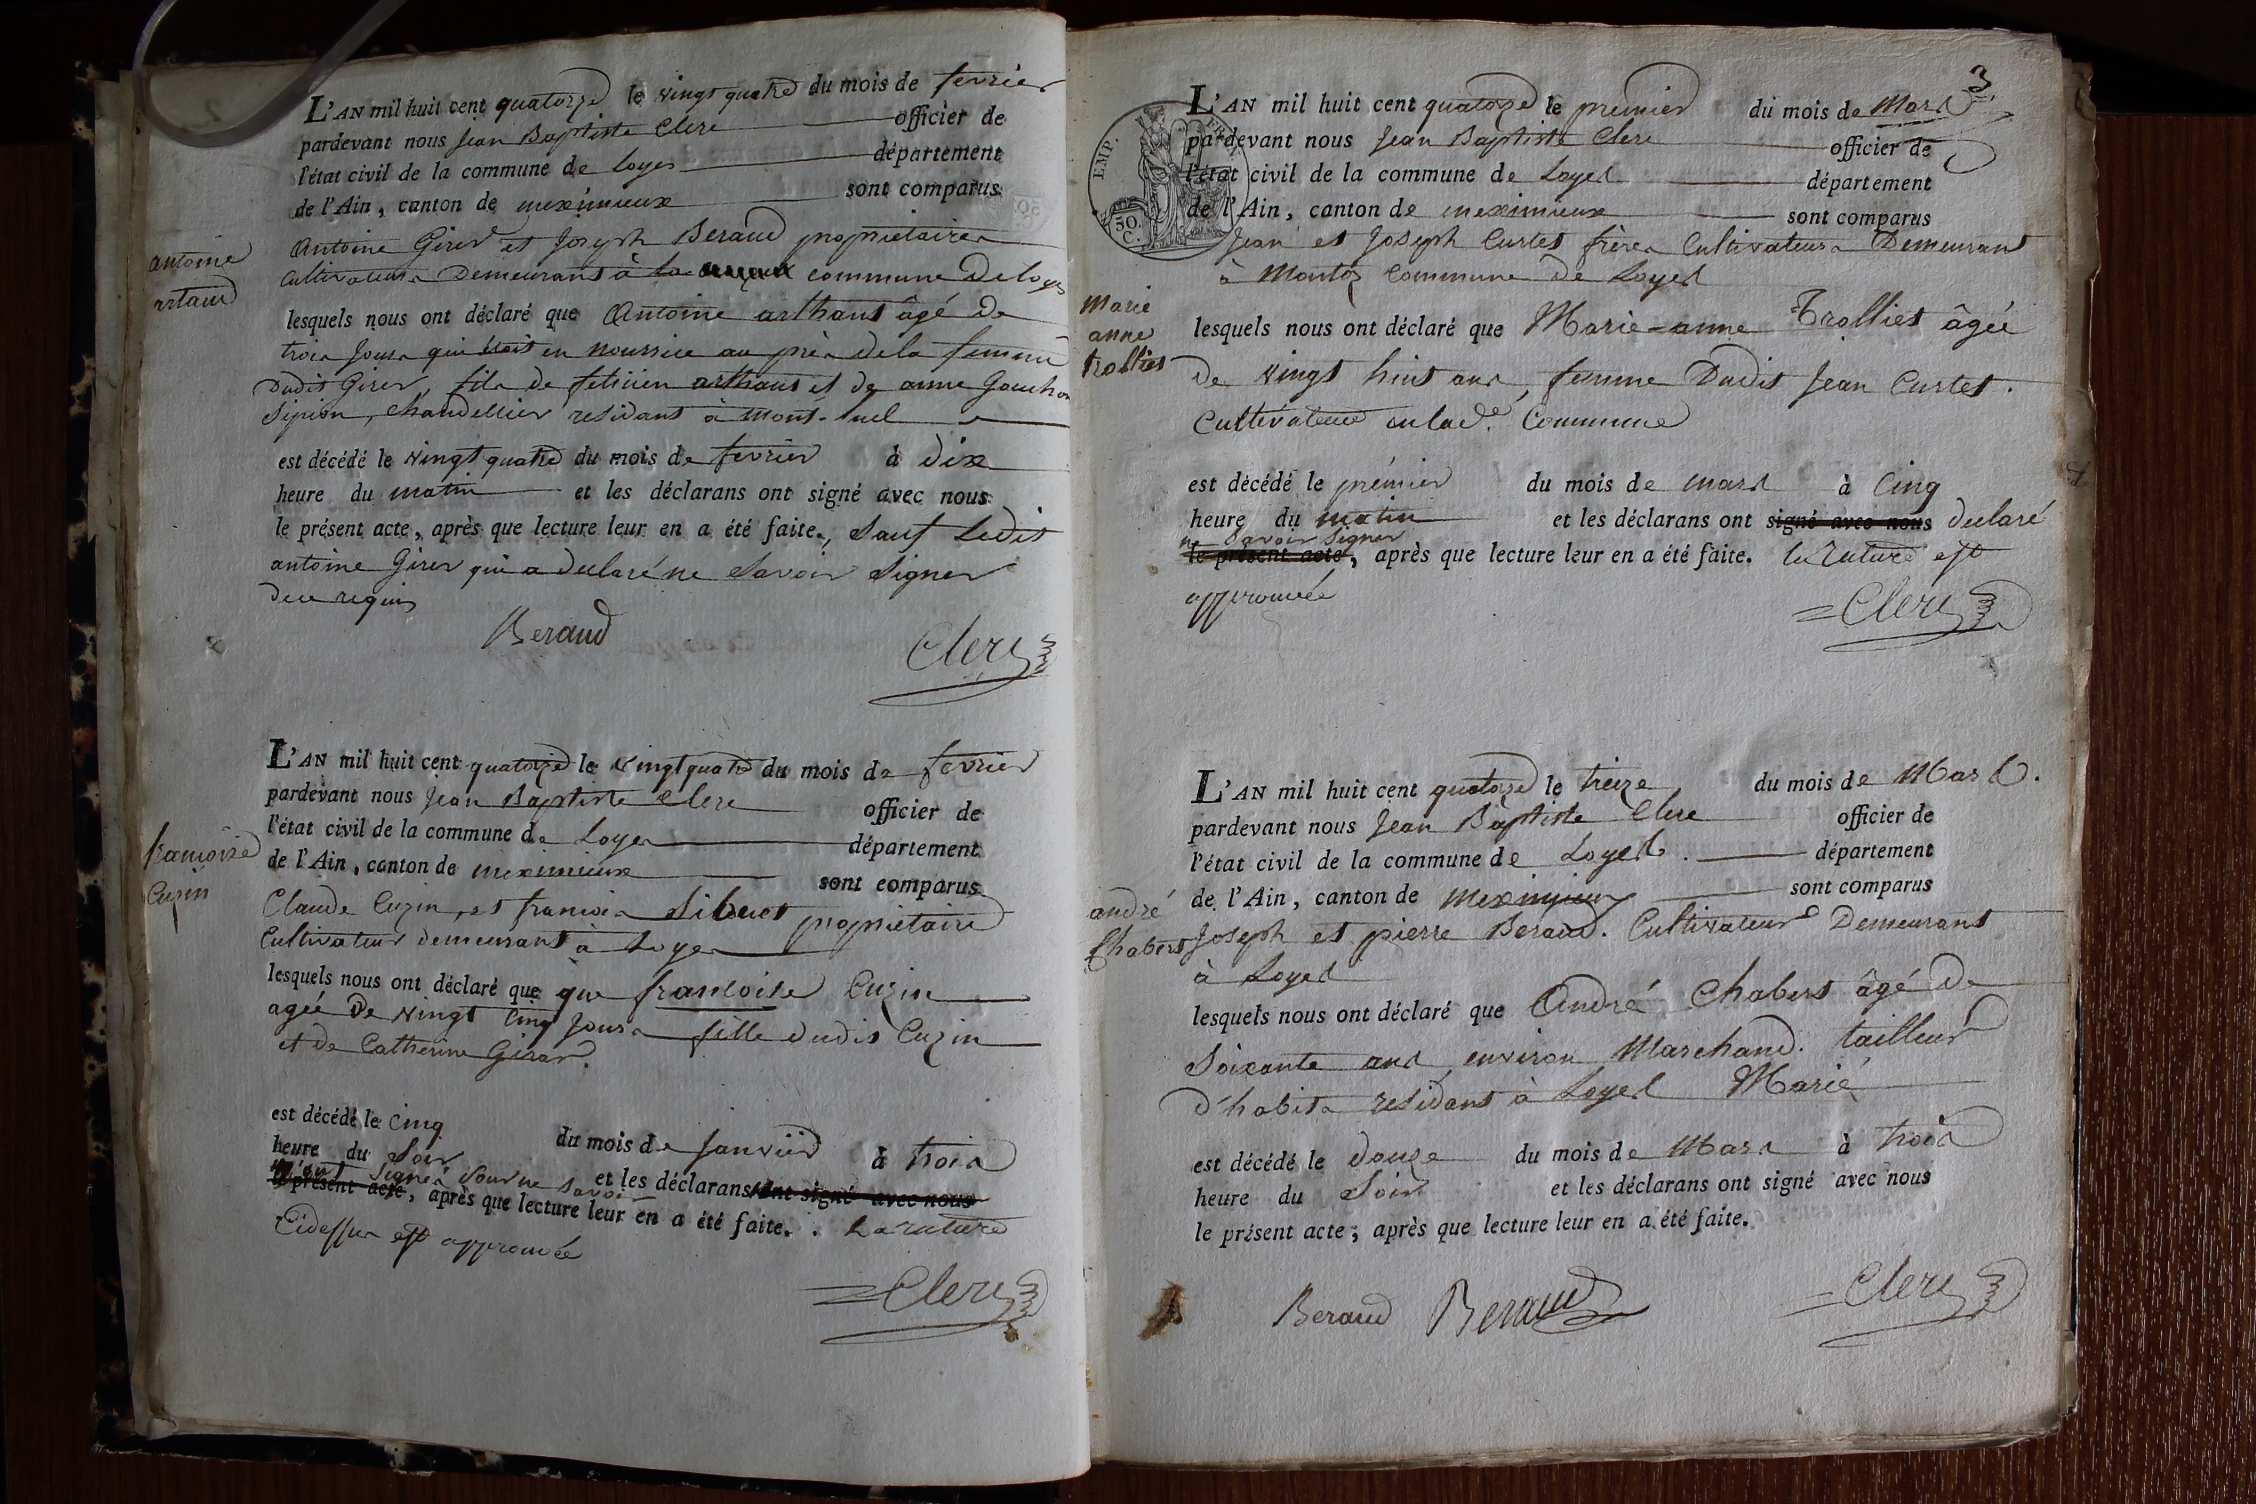 L'AN mil huit cent quatorze le vingt quatre du mois de fevrier
pardevant nous Jean Baptiste Clerc officier de
l'état civil de la commune de loyes département
de l'Ain, canton de meximieux sont comparus
Antoine Girer et Joseph Beraud proprietaires
antoine
artaud
Cultivateurs Demeurants à la commune De loyes
lesquels nous ont déclaré que Antoine arthaut âgé De
trois Jours qui étoit en nourrice au près dela femme
Dudit Girer, fils de felicien arthaut et de anne Gouchon
Sipion, Chandellier residant à Mont-luel
est décédé le vingt quatre du mois de fevrier à dix
heure du matin et les déclarans ont signé avec nous
le présent acte, après que lecture leur en a été faite., Sauf Ledit
antoine Girer qui a declaré ne Savoir Signer
dece requis
Beraud
Clerc
L'AN mil huit cent quatorze le vingt quatre du mois de fevrier
pardevant nous Jean Baptiste Clerc officier de
l'état civil de la commune de Loyes département
de l'Ain, canton de meximieux sont comparus
francoise
Cuzin
Claude Cuzin et francois Siberet propriétaire
Cultivateur demeurant à Loyes
lesquels nous ont déclaré que que francoise Cuzin
agée De vingt Cinq Jours fille dudit Cuzin
et de Catherine Girard.
est décédé le Cinq du mois de Janvier à trois
heure du Soir et les déclarans ont signé avec nous
n'ont Signé pour ne Savoir
le présent acte, après que lecture leur en a été faite. . La rature
Cidessus est approuvée
Clerc
3
EMP.
50
C.
L'AN mil huit cent quatorze le premier du mois de Mars
pardevant nous Jean Baptiste Clerc officier de
l'état civil de la commune de Loyes département
de l'Ain, canton de meximieux sont comparus
Jean et Joseph Curtet frères Cultivateurs Demeurant
à Montoz Commune De Loyes
Marie
anne
trolliet
lesquels nous ont déclaré que Marie-anne Trolliet âgée
de vingt huit ans, femme Dudit Jean Curtet.
Cultivateur en lad.e Commune
est décédé le premier du mois de mars à Cinq
heure du matin et les déclarans ont signé avec nous declaré
ne Savoir Signer
le présent acte, après que lecture leur en a été faite. la Rature est
approuvée
Clerc
L'AN mil huit cent quatorze le treize du mois de Mars.
pardevant nous Jean Baptiste Clerc officier de
l'état civil de la commune de Loyes. département
de l'Ain, canton de Meximieux sont comparus
andré
Chabert
Joseph et pierre Beraud. Cultivateurs Demeurant
à Loyes
lesquels nous ont déclaré que André Chabert âgé De
Soixante ans environ Marchand. tailleur
d'habits residant à Loyes Marié
est décédé le douze du mois de Mars à trois
heure du Soir et les déclarans ont signé avec nous
le présent acte, après que lecture leur en a été faite.
Beraud Beraud
Clerc